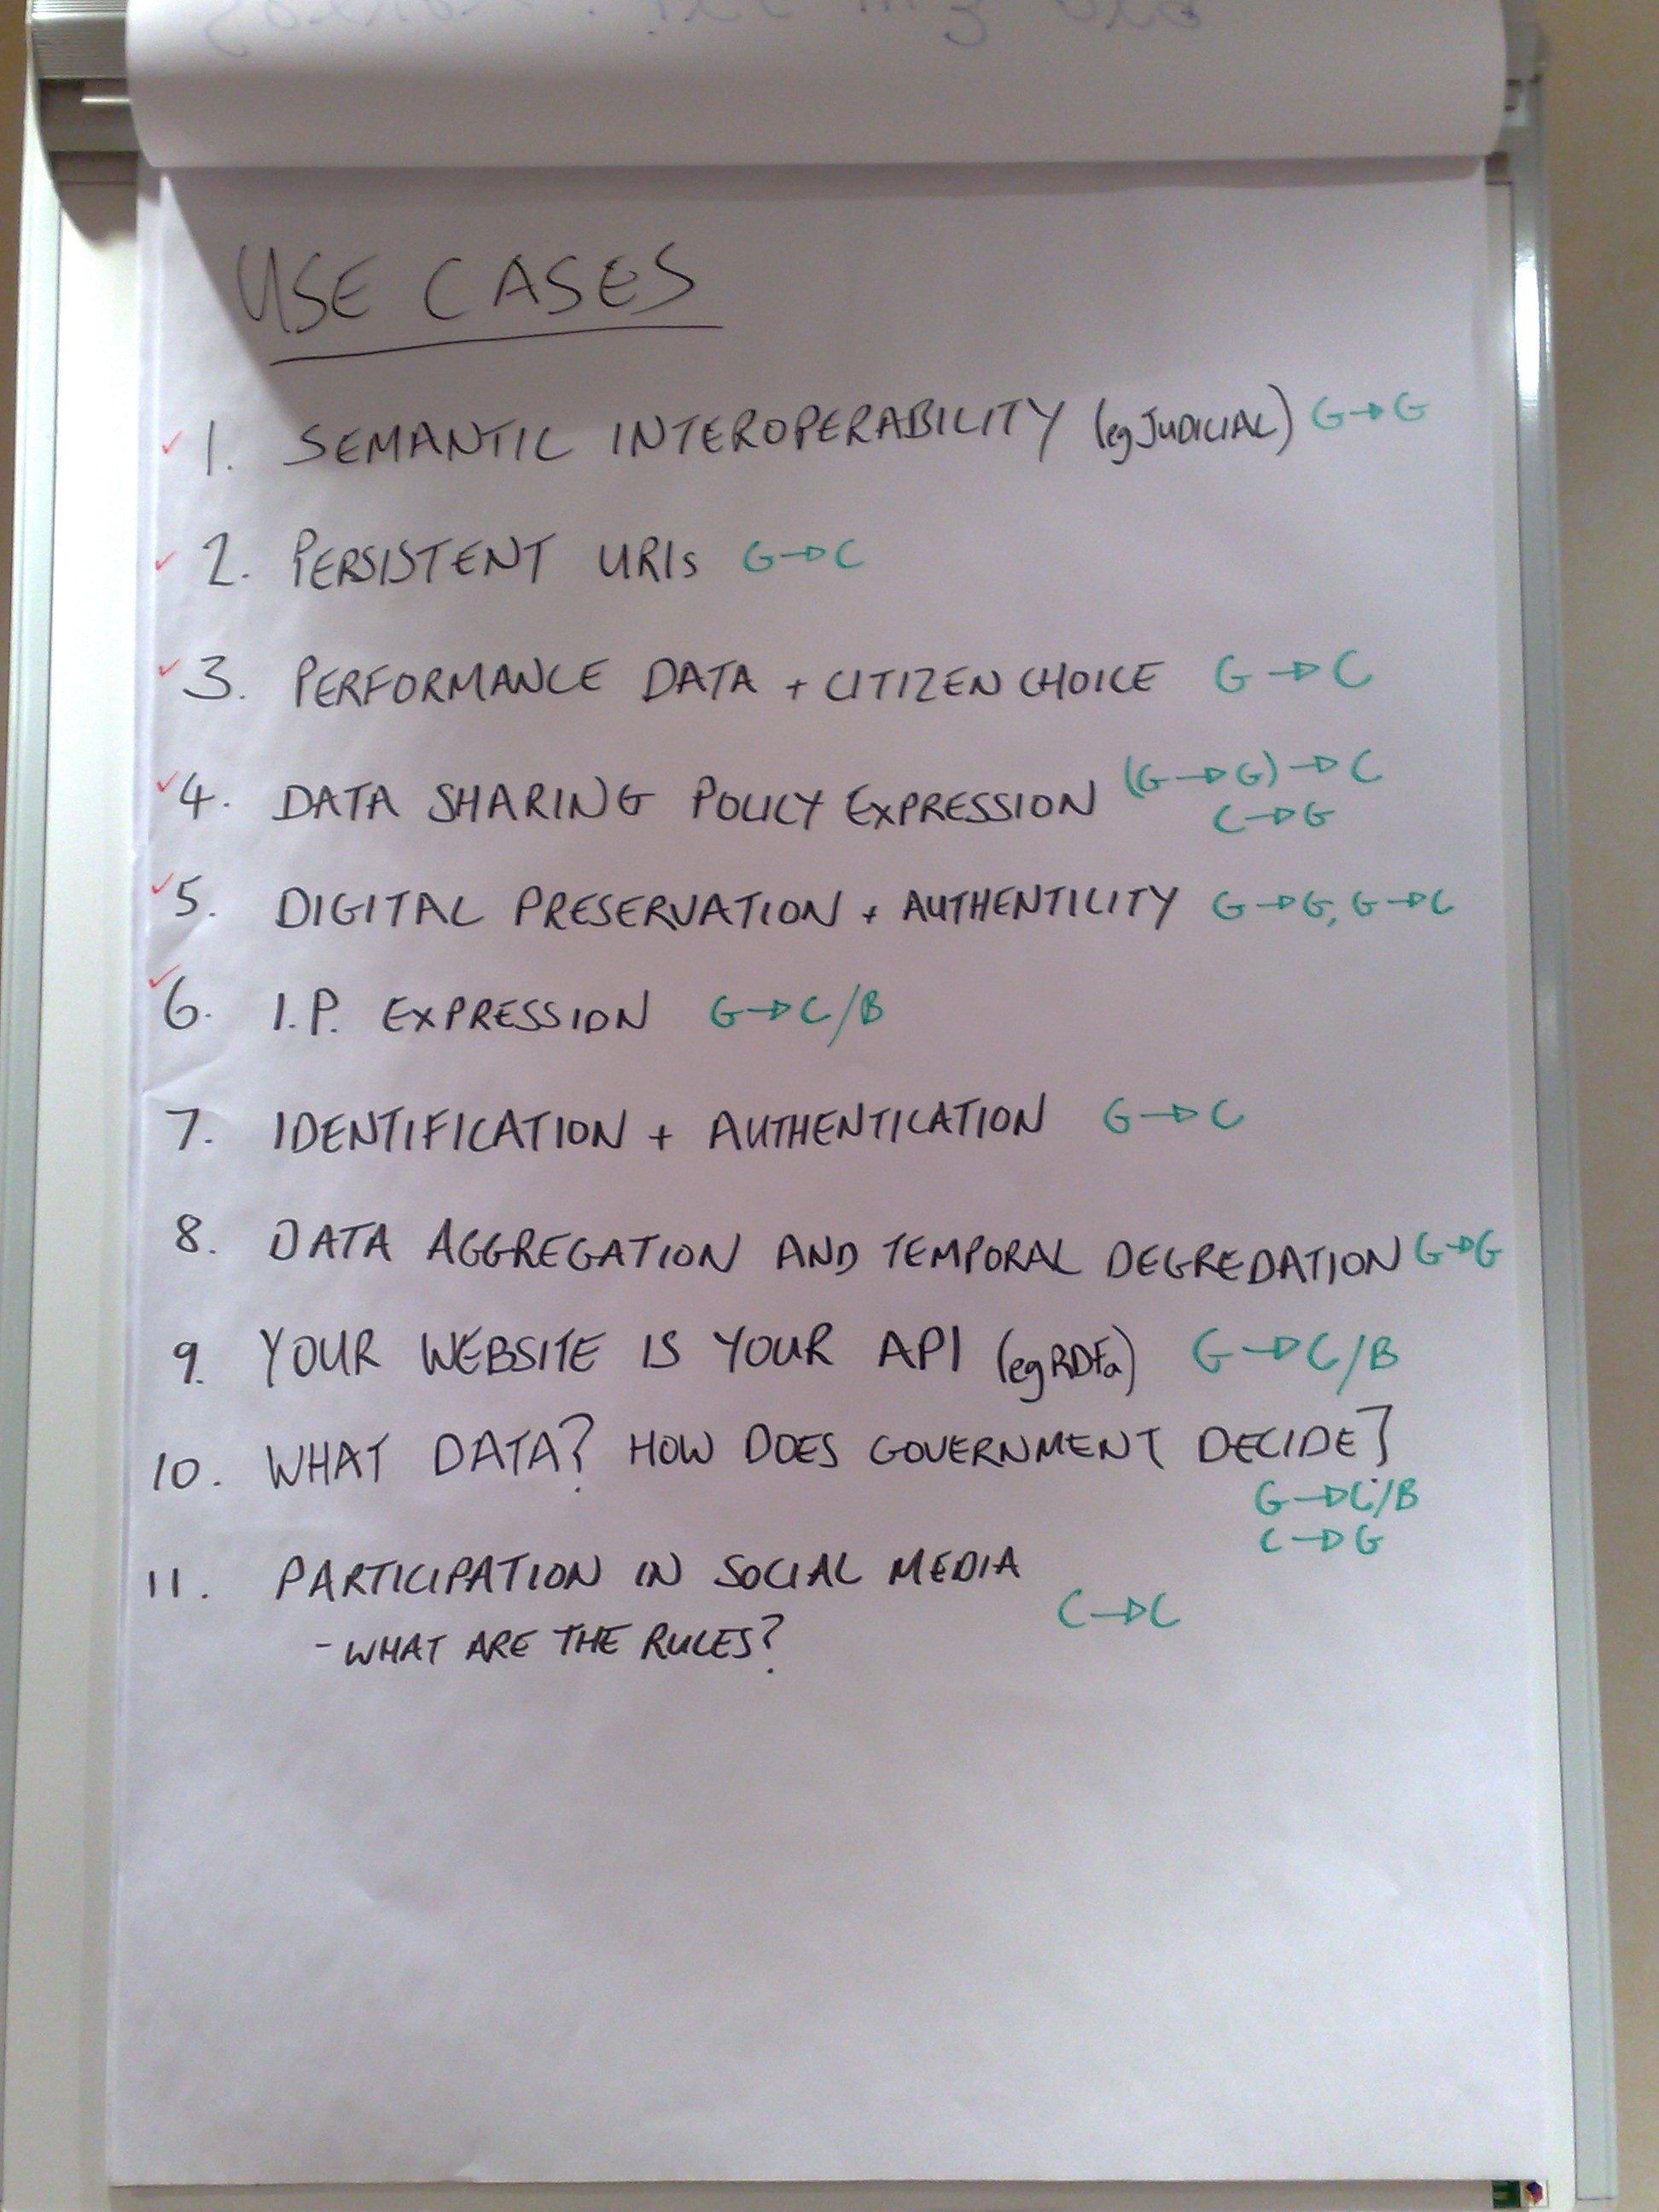 USE CASES
✓ 1. SEMANTIC INTEROPERABILITY (eg JUDICIAL) G→G
✓ 2. PERSISTENT URIs G→C
✓ 3. PERFORMANCE DATA + CITIZEN CHOICE G→C
✓ 4. DATA SHARING POLICY EXPRESSION (G→G)→C
C→G
✓ 5. DIGITAL PRESERVATION + AUTHENTICITY G→G, G→C
✓ 6. I.P. EXPRESSION G→C/B
7. IDENTIFICATION + AUTHENTICATION G→C
8. DATA AGGREGATION AND TEMPORAL DEGREDATION G→G
9. YOUR WEBSITE IS YOUR API (eg RDFa) G→C/B
10. WHAT DATA? HOW DOES GOVERNMENT DECIDE?
G→C/B
C→G
11. PARTICIPATION IN SOCIAL MEDIA
C→C
- WHAT ARE THE RULES?